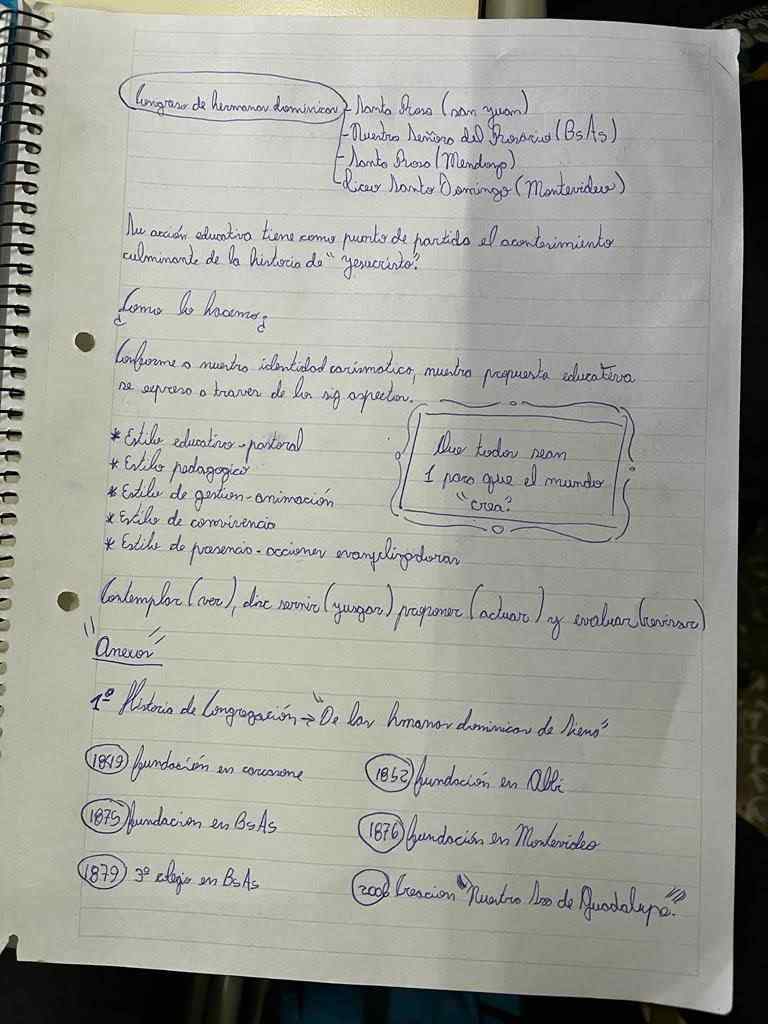 Congreso de hermanas dominicas - Santa Rosa (san yuan)
- Nuestra Señora del Rosario (BsAs)
- Santa Rosa (Mendoza)
- Liceo Santo Domingo (Montevideo)
Su acción educativa tiene como punto de partida el acontesimiento
culminante de la historia de "Yesucristo".
¿Como lo hacemos?
Conforme a nuestra identidad carismatica, nuestra propuesta educativa
se expresa a traves de los sig aspectos.
* Estilo educativo-pastoral
* Estilo pedagogico
* Estilo de gestion-animación
* Estilo de convivencia
* Estilo de presencia-acciones evangelizadoras
Que todos sean
1 para que el mundo
"crea".
Contemplar (ver), disc sernir (yusgar) proponer (actuar) y evaluar (revisar)
"Anexos"
1º Historia de Congregación → "De las hmanas dominicas de Siena"
1849 fundación en carcasone
1852 fundación en Albi
1875 fundacion en BsAs
1876 fundación en Montevideo
1879 3º colegio en BsAs
2006 Creacion "Nuestra Sra de Guadalupe."